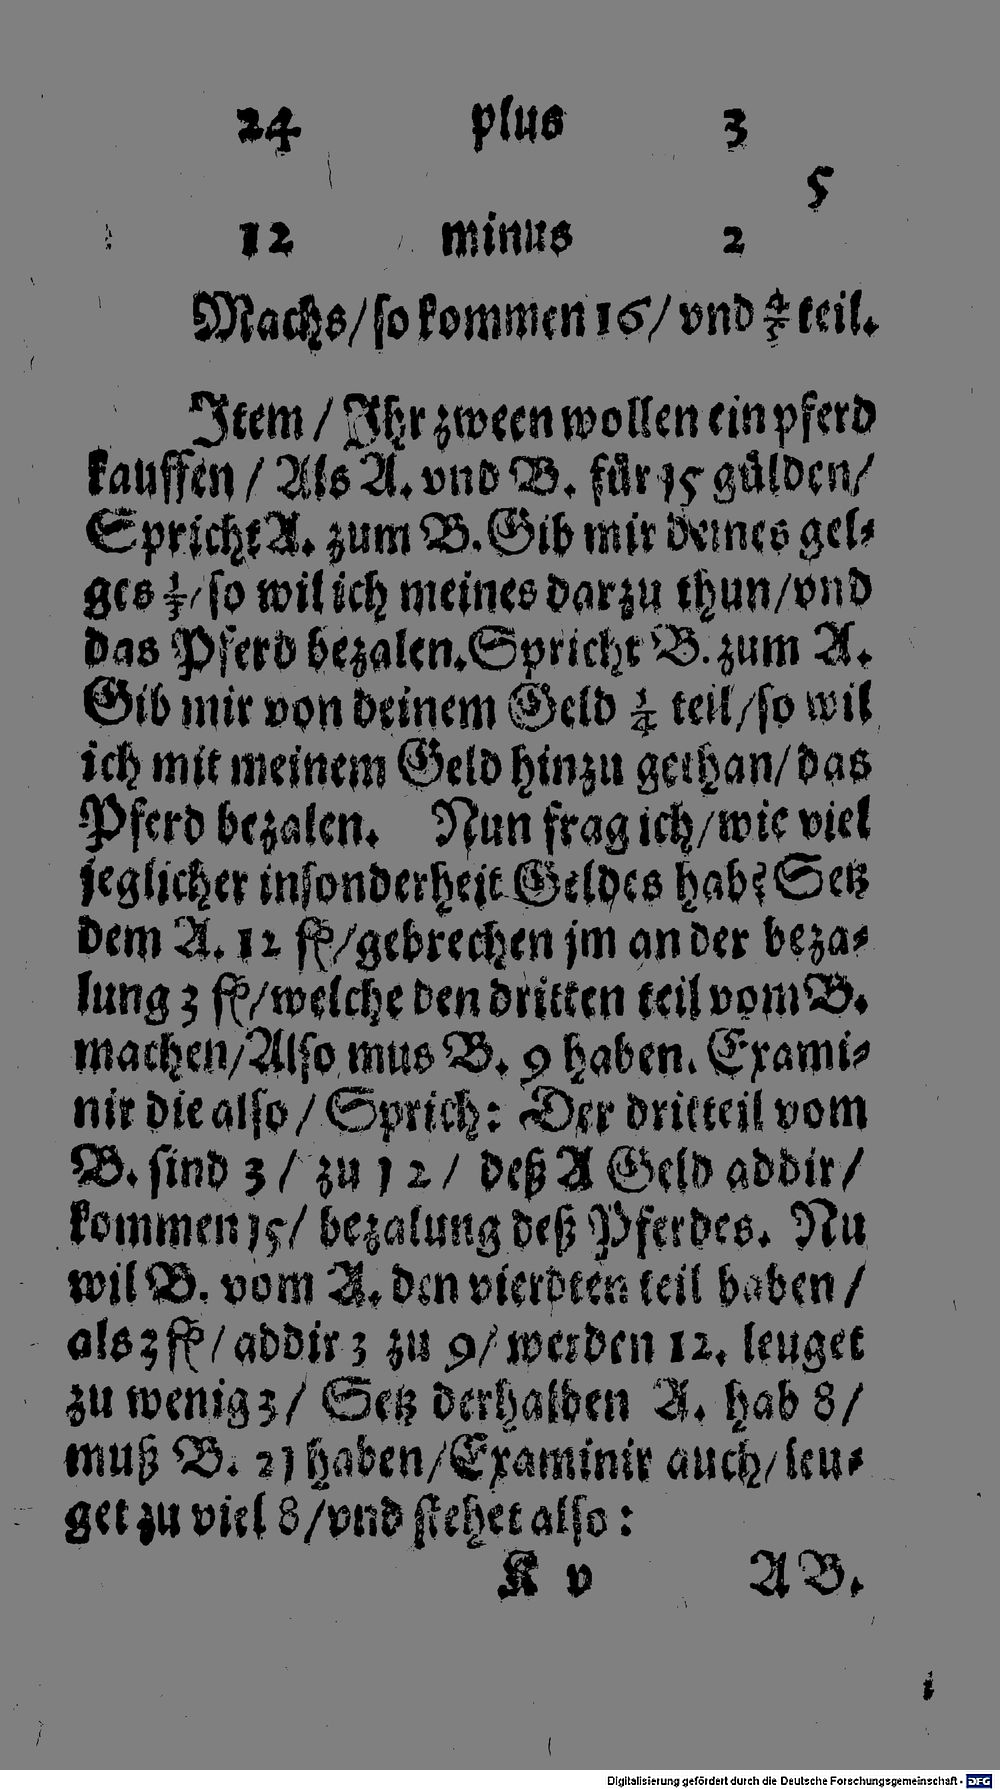 24 plus 3
5
12 minus 2
Machs/so kommen 16/ vnd 4/5 teil.
Item / Ihr zween wollen ein pferd
kauffen / Als A. vnd B. für 15 gülden/
Spricht A. zum B. Gib mir deines gel-
ges 1/3/so wil ich meines darzu thun/vnd
das Pferd bezalen. Spricht B. zum A.
Gib mir von deinem Geld 1/4 teil/so wil
ich mit meinem Geld hinzu gethan/das
Pferd bezalen. Nun frag ich/wie viel
jeglicher insonderheit Geldes hab? Setz
dem A. 12 fl/gebrechen jm an der beza-
lung 3 fl/welche den dritten teil vom B.
machen/Also mus B. 9 haben. Exami-
nir die also / Sprich: Der dritteil vom
B. sind 3 / zu 12 / deß A Geld addir/
kommen 15/ bezalung deß Pferdes. Nu
wil B. vom A. den vierdten teil haben /
als 3 fl/ addir 3 zu 9/ werden 12. leuget
zu wenig 3/ Setz derhalben A. hab 8/
muß B. 21 haben/Examinir auch/leu-
get zu viel 8/vnd stehet also:
K v A B.
Digitalisierung gefördert durch die Deutsche Forschungsgemeinschaft - DFG